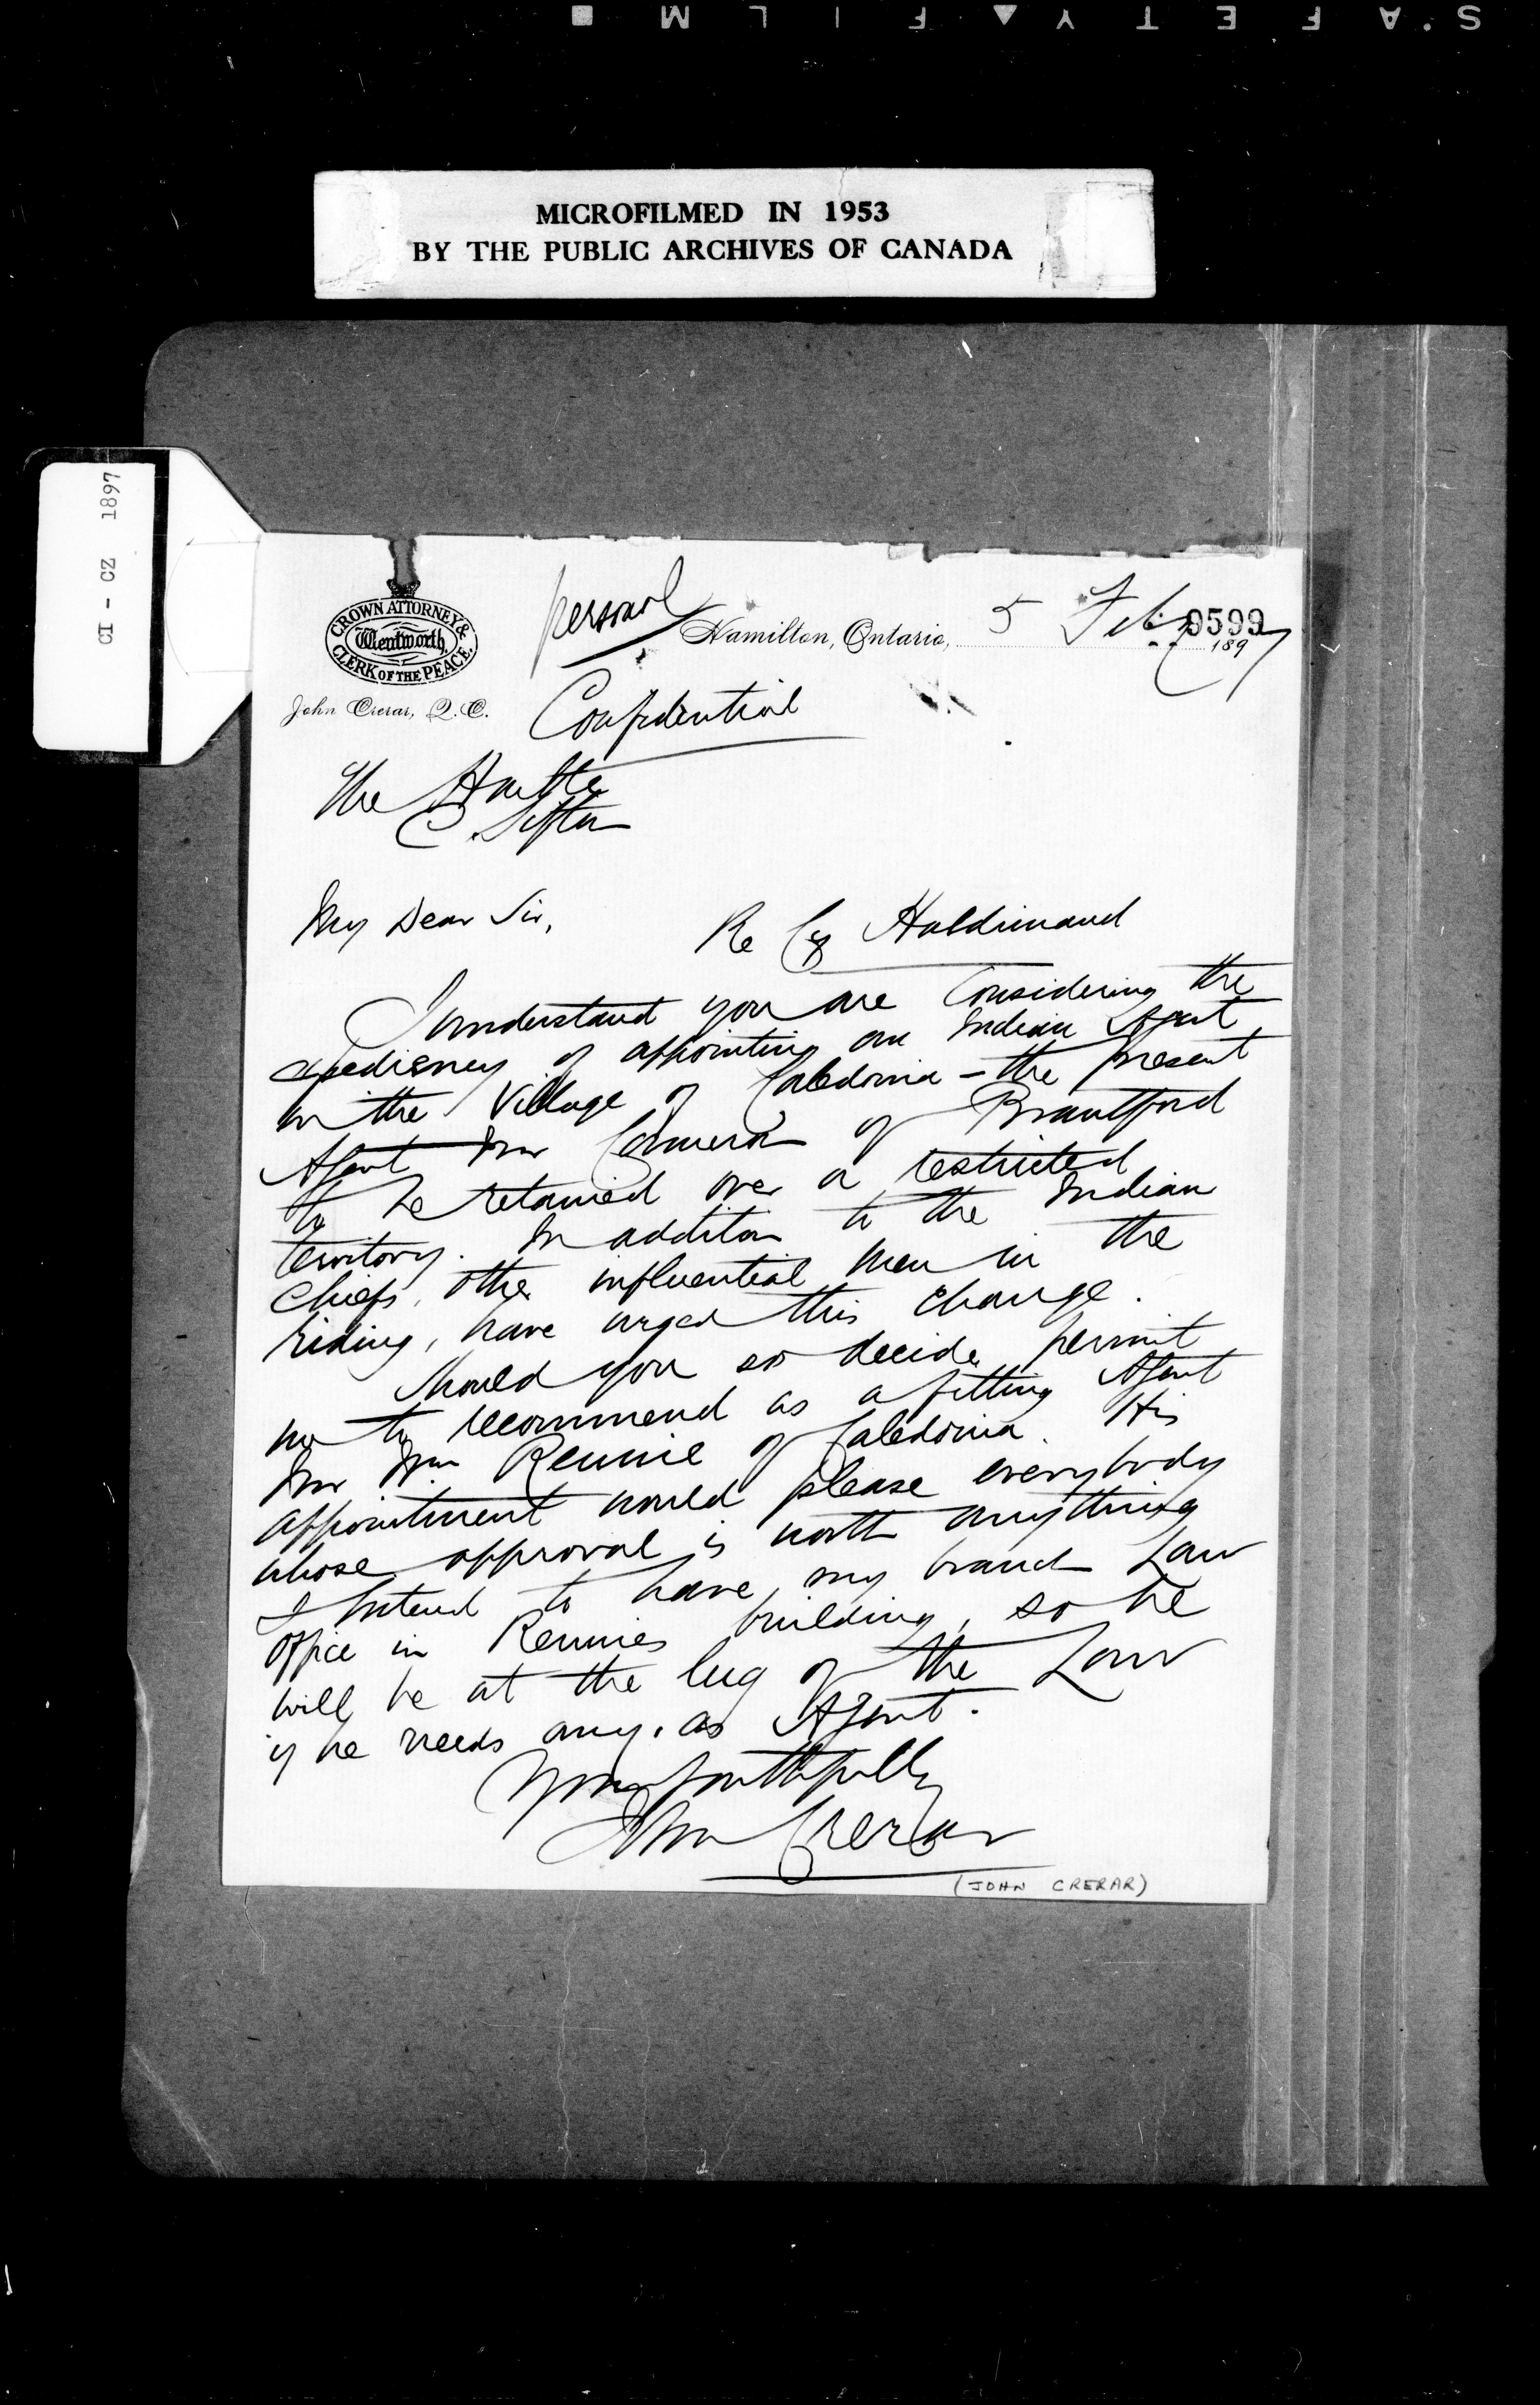 S'AFETY FILM
MICROFILMED IN 1953
BY THE PUBLIC ARCHIVES OF CANADA
CI - CZ 1897
CROWN ATTORNEY &
Wentworth,
CLERK OF THE PEACE.
John Crerar, Q. C.
personal
Hamilton, Ontario, 5 Feby 1897
9599
Confidential
The Honble
C. Sifton
My Dear Sir,
Re Co Haldimand
I understand you are Considering the
expediency of appointing an Indian Agent
in the Village of Caledonia - the present
Agent Mr Cameron of Brantford
to be retained over a restricted
territory. In addition to the Indian
Chiefs, other influential men in the
riding, have urged this change.
Should you so decide, permit
me to recommend as a fitting Agent
Mr Wm Rennie of Caledonia. His
appointment would please everybody
whose approval is worth anything
I intend to have my branch Law
office in Rennies building, so he
will be at the lug of the Law
if he needs any, as Agent.
Yours faithfully
John Crerar
(JOHN CRERAR)